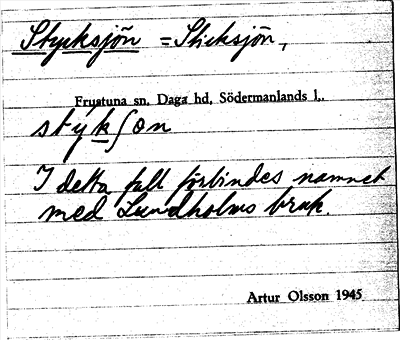 Stycksjön = Sticksjön,
Frustuna sn, Daga hd, Södermanlands l..
stykʃon
I detta fall förbindes namnet
med Lundholms bruk.
Artur Olsson 1945